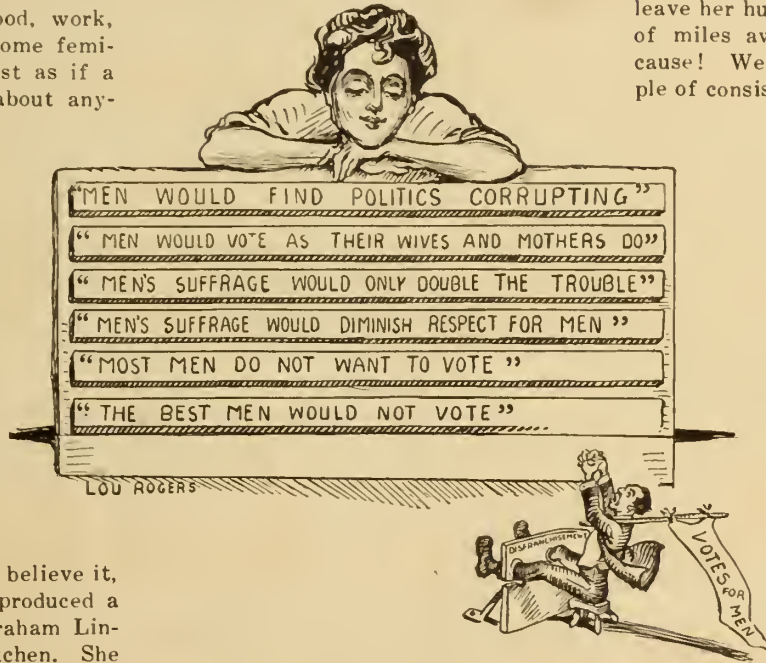 ood, work,
ome femi-
st as if a
about any-
leave her hu
of miles av
cause! We
ple of consis
"MEN WOULD FIND POLITICS CORRUPTING"
"MEN WOULD VOTE AS THEIR WIVES AND MOTHERS DO"
"MEN'S SUFFRAGE WOULD ONLY DOUBLE THE TROUBLE"
"MEN'S SUFFRAGE WOULD DIMINISH RESPECT FOR MEN"
"MOST MEN DO NOT WANT TO VOTE"
"THE BEST MEN WOULD NOT VOTE"
LOU ROGERS
DISFRANCHISEMENT
VOTES FOR MEN
believe it,
produced a
raham Lin-
chen. She